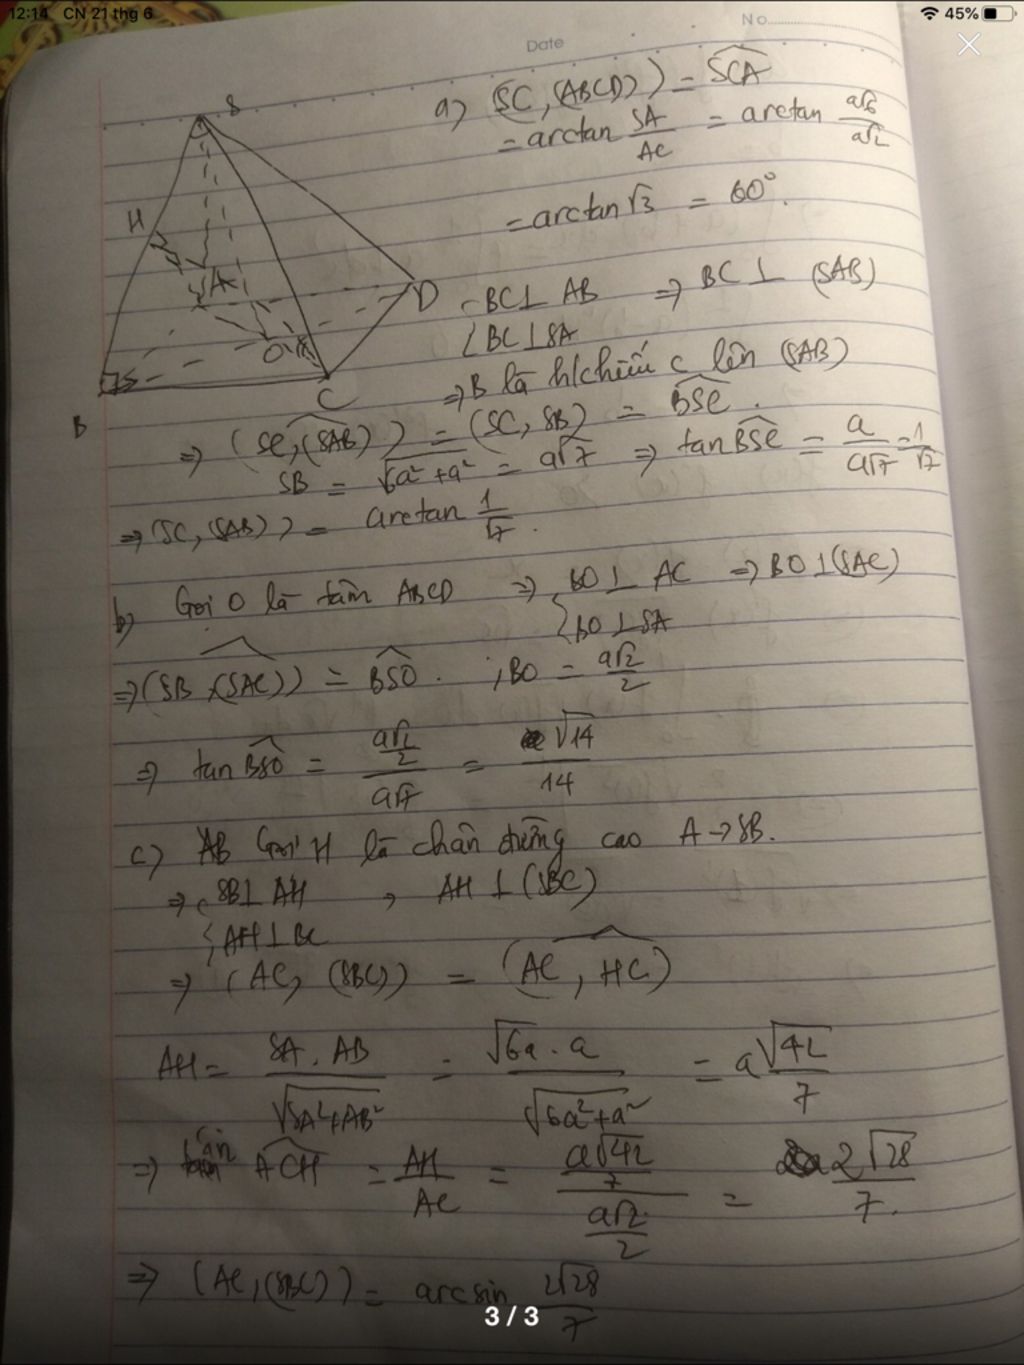 12:14 CN 21 thg 6
45%
No
Date
S
H
A
D
O
B
C
a) (SC, (ABCD)) = SCA
= arctan SA/AC = arctan a√6/a√2
= arctan √3 = 60°.
{ BC ⊥ AB ⇒ BC ⊥ (SAB)
BC ⊥ SA
⇒ B là h/chiếu C lên (SAB)
⇒ (SC, (SAB)) = (SC, SB) = BSC.
SB = √6a² + a² = a√7 ⇒ tan BSC = a/a√7 = 1/√7
⇒ (SC, (SAB)) = arctan 1/√7.
b) Gọi O là tâm ABCD ⇒ { BO ⊥ AC ⇒ BO ⊥ (SAC)
BO ⊥ SA
⇒ (SB, (SAC)) = BSO. ; BO = a√2/2
⇒ tan BSO = a√2/2 / a√7 = √14/14
c) AB Gọi H là chân đường cao A → SB.
⇒ { SB ⊥ AH , AH ⊥ (SBC)
AH ⊥ BC
⇒ (AC, (SBC)) = (AC, HC)
AH = SA . AB/√SA² + AB² = √6a . a/√6a² + a² = a√42/7
⇒ ACH = AH/AC = a√42/7 / a√2/2 = 2√28/7.
⇒ (AC, (SBC)) = arcsin 2√28/7
3 / 3